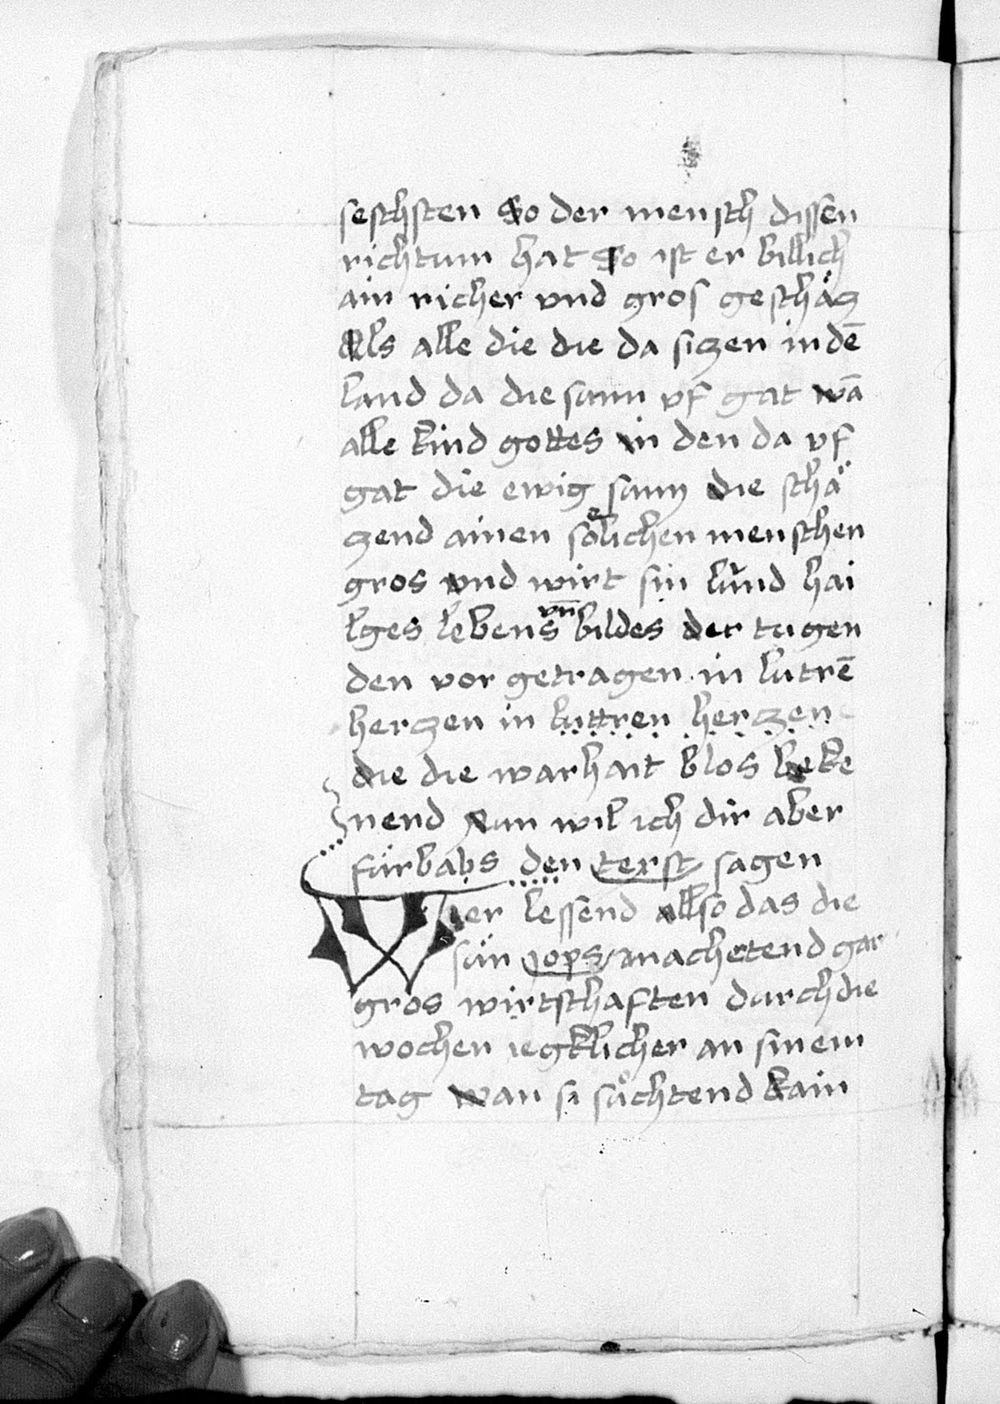 sechsten So der mensch dissen
richtum hat So ist er billich
ain richer vnd gros geschäz
Als alle die die da sizen in dē
land da die sunn vf gat wā
alle kind gottes in den da vf
gat die ewig sunn die schä
zend ainen soͤlichen menschen
gros vnd wirt sin lünd hai
lges lebens vn̄ bildes der tugen
den vor getragen in lutrē
herczen in luttren herczen
die die warhait blos beke
nend Nun wil ich dir aber
fürbabs den terst sagen
Wier lessend allso das die
sün iops machetend gar
gros wirtschaften durch die
wochen iegklicher an sinem
tag wan si suͦchtend kain